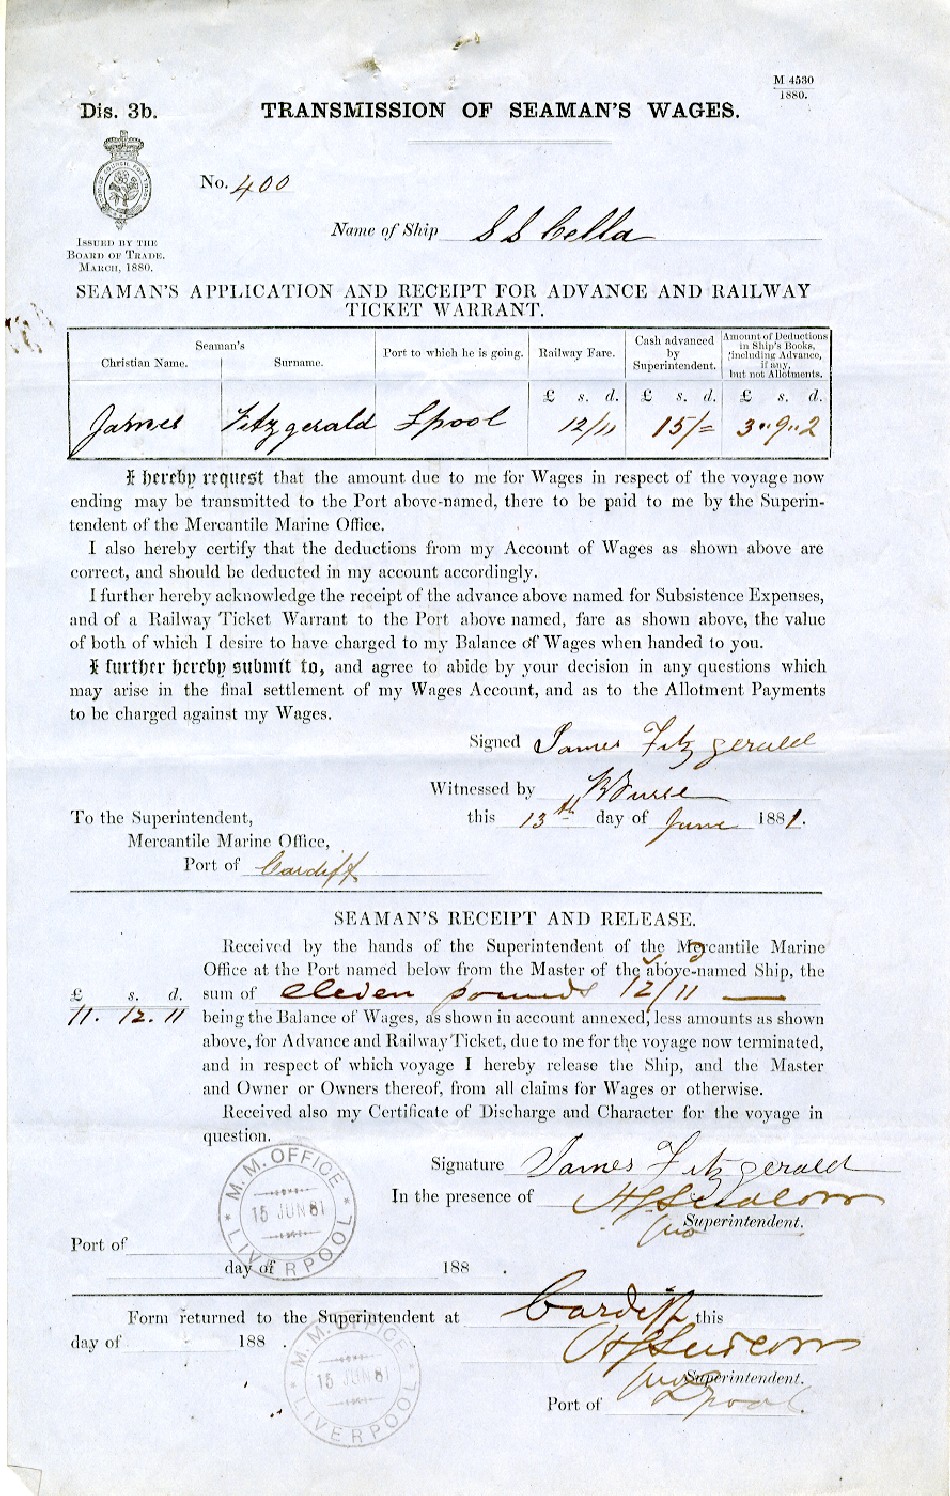 M 4530
1880.
Dis. 3b.
TRANSMISSION OF SEAMAN'S WAGES.
No. 400
Name of Ship S S Cella
ISSUED BY THE
BOARD OF TRADE.
MARCH, 1880.
SEAMAN'S APPLICATION AND RECEIPT FOR ADVANCE AND RAILWAY
TICKET WARRANT.
Seaman's
Christian Name.
Surname.
Port to which he is going.
Railway Fare.
Cash advanced
by
Superintendent.
Amount of Deductions
in Ship's Books,
including Advance,
if any,
but not Allotments.
£ s. d. £ s. d. £ s. d.
James Fitzgerald Lpool 12/11 15/= 3"9"2
I hereby request that the amount due to me for Wages in respect of the voyage now
ending may be transmitted to the Port above-named, there to be paid to me by the Superin-
tendent of the Mercantile Marine Office.
I also hereby certify that the deductions from my Account of Wages as shown above are
correct, and should be deducted in my account accordingly.
I further hereby acknowledge the receipt of the advance above named for Subsistence Expenses,
and of a Railway Ticket Warrant to the Port above named, fare as shown above, the value
of both of which I desire to have charged to my Balance of Wages when handed to you.
I further hereby submit to, and agree to abide by your decision in any questions which
may arise in the final settlement of my Wages Account, and as to the Allotment Payments
to be charged against my Wages.
Signed James Fitzgerald
Witnessed by
this 13th day of June 1881.
To the Superintendent,
Mercantile Marine Office,
Port of Cardiff
SEAMAN'S RECEIPT AND RELEASE.
Received by the hands of the Superintendent of the Mercantile Marine
Office at the Port named below from the Master of the above-named Ship, the
£ s. d. sum of eleven pounds 12/11
11. 12. 11 being the Balance of Wages, as shown in account annexed, less amounts as shown
above, for Advance and Railway Ticket, due to me for the voyage now terminated,
and in respect of which voyage I hereby release the Ship, and the Master
and Owner or Owners thereof, from all claims for Wages or otherwise.
Received also my Certificate of Discharge and Character for the voyage in
question.
Signature James Fitzgerald
In the presence of
Superintendent.
M. M. OFFICE
15 JUN 81
LIVERPOOL
Port of
day of 188 .
Form returned to the Superintendent at Cardiff this
day of 188 .
M. M. OFFICE
15 JUN 81
LIVERPOOL
Superintendent.
Port of Lpool.